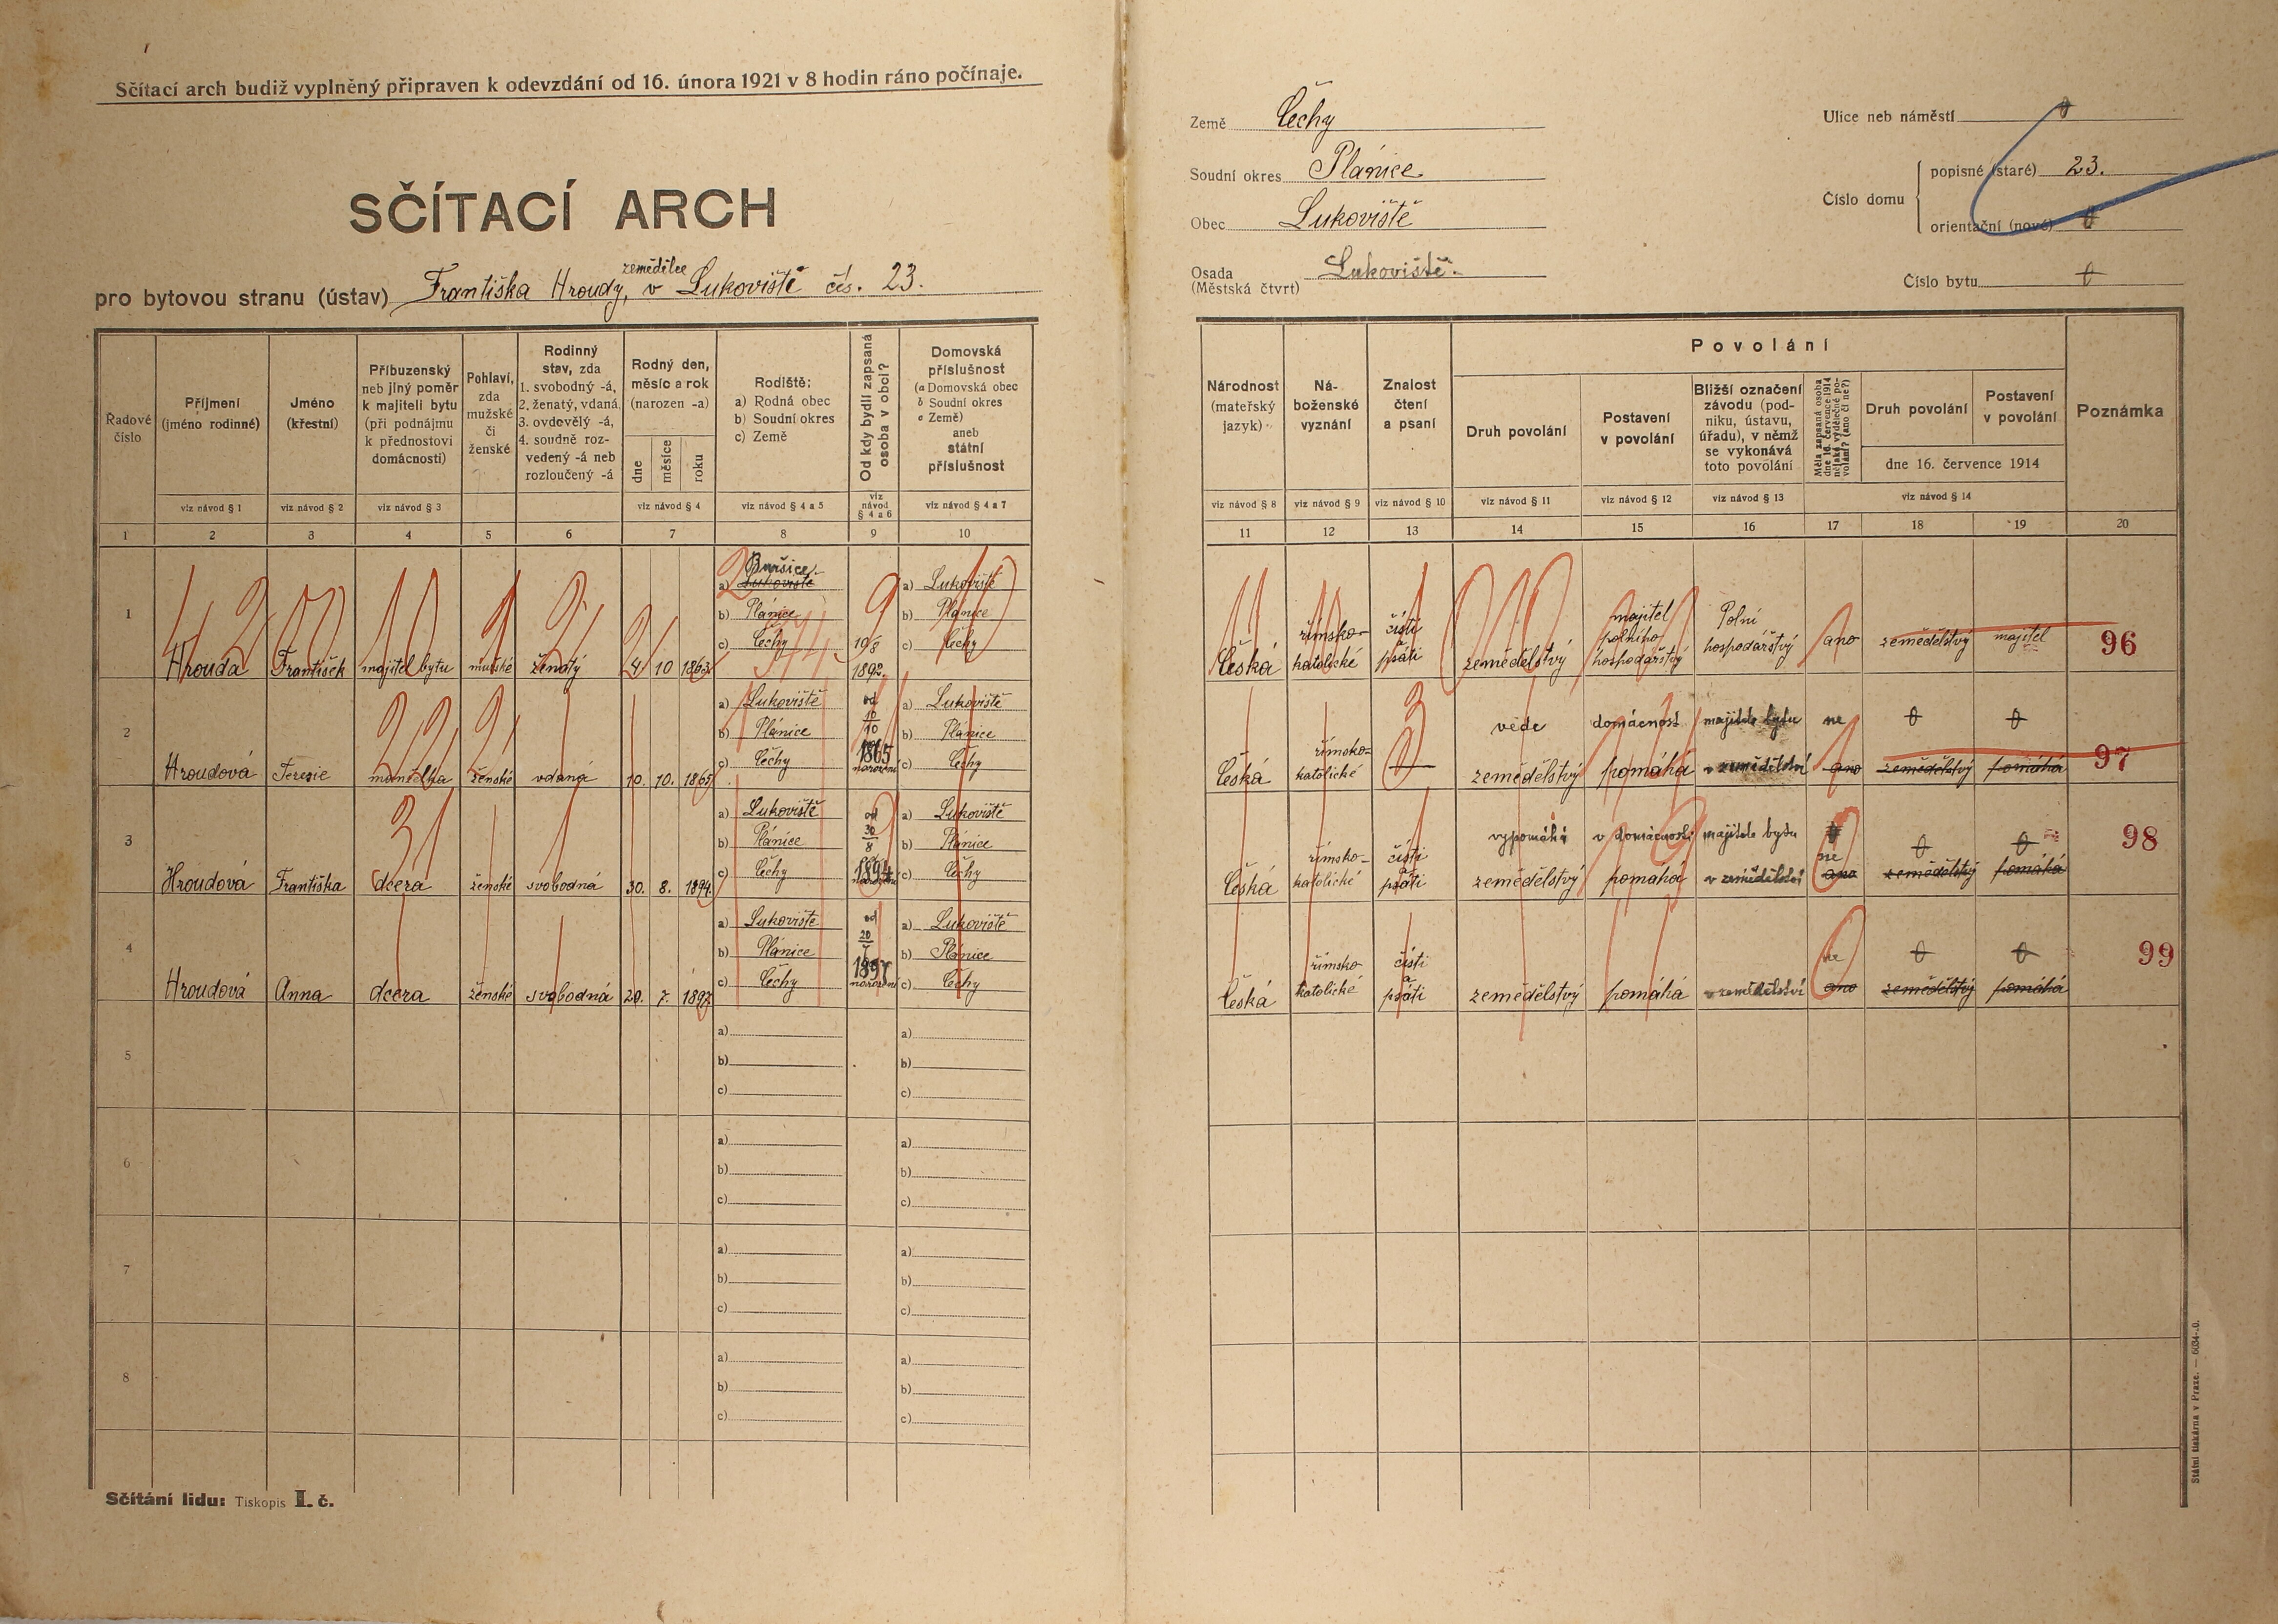 Sčítací arch budiž vyplněný připraven k odevzdání od 16. února 1921 v 8 hodin ráno počínaje.
SČÍTACÍ ARCH
zemědělce
pro bytovou stranu (ústav) Františka Hroudy, v Lukoviště čís. 23.
Země Čechy
Soudní okres Plánice
Obec Lukoviště
Osada Lukoviště.
(Městská čtvrt)
Ulice neb náměstí 0
Číslo domu
popisné (staré) 23.
orientační (nové) 0
Číslo bytu 0
Řadové číslo
Příjmení (jméno rodinné)
Jméno (křestní)
Příbuzenský neb jiný poměr k majiteli bytu (při podnájmu k přednostovi domácnosti)
Pohlaví, zda mužské či ženské
Rodinný stav, zda 1. svobodný -á, 2. ženatý, vdaná, 3. ovdovělý -á, 4. soudně rozvedený -á neb rozloučený -á
Rodný den, měsíc a rok (narozen -a)
dne
měsíce
roku
Rodiště:
a) Rodná obec
b) Soudní okres
c) Země
Od kdy bydlí zapsaná osoba v obci?
Domovská příslušnost
(a Domovská obec
b Soudní okres
c Země)
aneb
státní příslušnost
viz návod § 1
viz návod § 2
viz návod § 3
viz návod § 4
viz návod § 4 a 5
viz návod § 4 a 6
viz návod § 4 a 7
1 2 3 4 5 6 7 8 9 10
Národnost (mateřský jazyk)
Náboženské vyznání
Znalost čtení a psaní
Povolání
Druh povolání
Postavení v povolání
Bližší označení závodu (podniku, ústavu, úřadu), v němž se vykonává toto povolání
Měla zapsaná osoba dne 16. července 1914 nějaké výdělečné povolání? (ano či ne?)
Druh povolání
Postavení v povolání
dne 16. července 1914
Poznámka
viz návod § 8
viz návod § 9
viz návod § 10
viz návod § 11
viz návod § 12
viz návod § 13
viz návod § 14
11 12 13 14 15 16 17 18 19 20
1 Hrouda František majitel bytu mužské ženatý 4 10 1863
a) Lukoviště
b) Plánice
c) Čechy
10/8 1892.
a) Lukoviště
b) Plánice
c) Čechy
Česká římsko-katolické čísti psáti zemědělstvý majitel polního hospodářstvý Polní hospodářstvý ano zemědělstvý majitel 96
2 Hroudová Terezie manželka ženské vdaná 10. 10. 1865
a) Lukoviště
b) Plánice
c) Čechy
od 10/10 1865 narození
a) Lukoviště
b) Plánice
c) Čechy
Česká římsko-katolické vede domácnost majitele bytu ne 0 0
zemědělstvý pomáhá v zemědělství ano zemědělstvý pomáhá 97
3 Hroudová Františka dcera ženské svobodná 30. 8. 1894
a) Lukoviště
b) Plánice
c) Čechy
od 30/8 1894
a) Lukoviště
b) Plánice
c) Čechy
Česká římsko-katolické čísti psáti vypomáhá v domácnosti majitele bytu ne 0 0
zemědělstvý pomáhá v zemědělství ano zemědělstvý pomáhá 98
4 Hroudová Anna dcera ženské svobodná 20. 7. 1897
a) Lukoviště
b) Plánice
c) Čechy
od 20/7 1897 narození
a) Lukoviště
b) Plánice
c) Čechy
Česká římsko-katolické čísti a psáti zemědělstvý pomáhá v zemědělství ne 0 0
ano zemědělstvý pomáhá 99
5
a)
b)
c)
a)
b)
c)
6
a)
b)
c)
a)
b)
c)
7
a)
b)
c)
a)
b)
c)
8
a)
b)
c)
a)
b)
c)
Sčítání lidu: Tiskopis I. č.
Státní tiskárna v Praze.